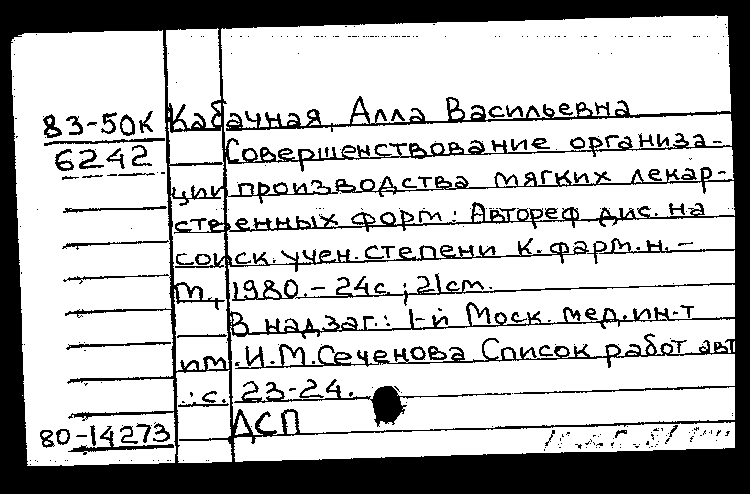 83-50К Кабачная, Алла Васильевна
6242 Совершенствование организа-
ции производства мягких лекар-
ственных форм: Автореф дис. на
соиск. учен. степени к. фарм. н. -
М., 1980. - 24с ; 21см.
В надзаг.: 1-й Моск. мед. ин-т
им. И.М.Сеченова Список работ авт
.: с. 23-24.
80-14273 ДСП